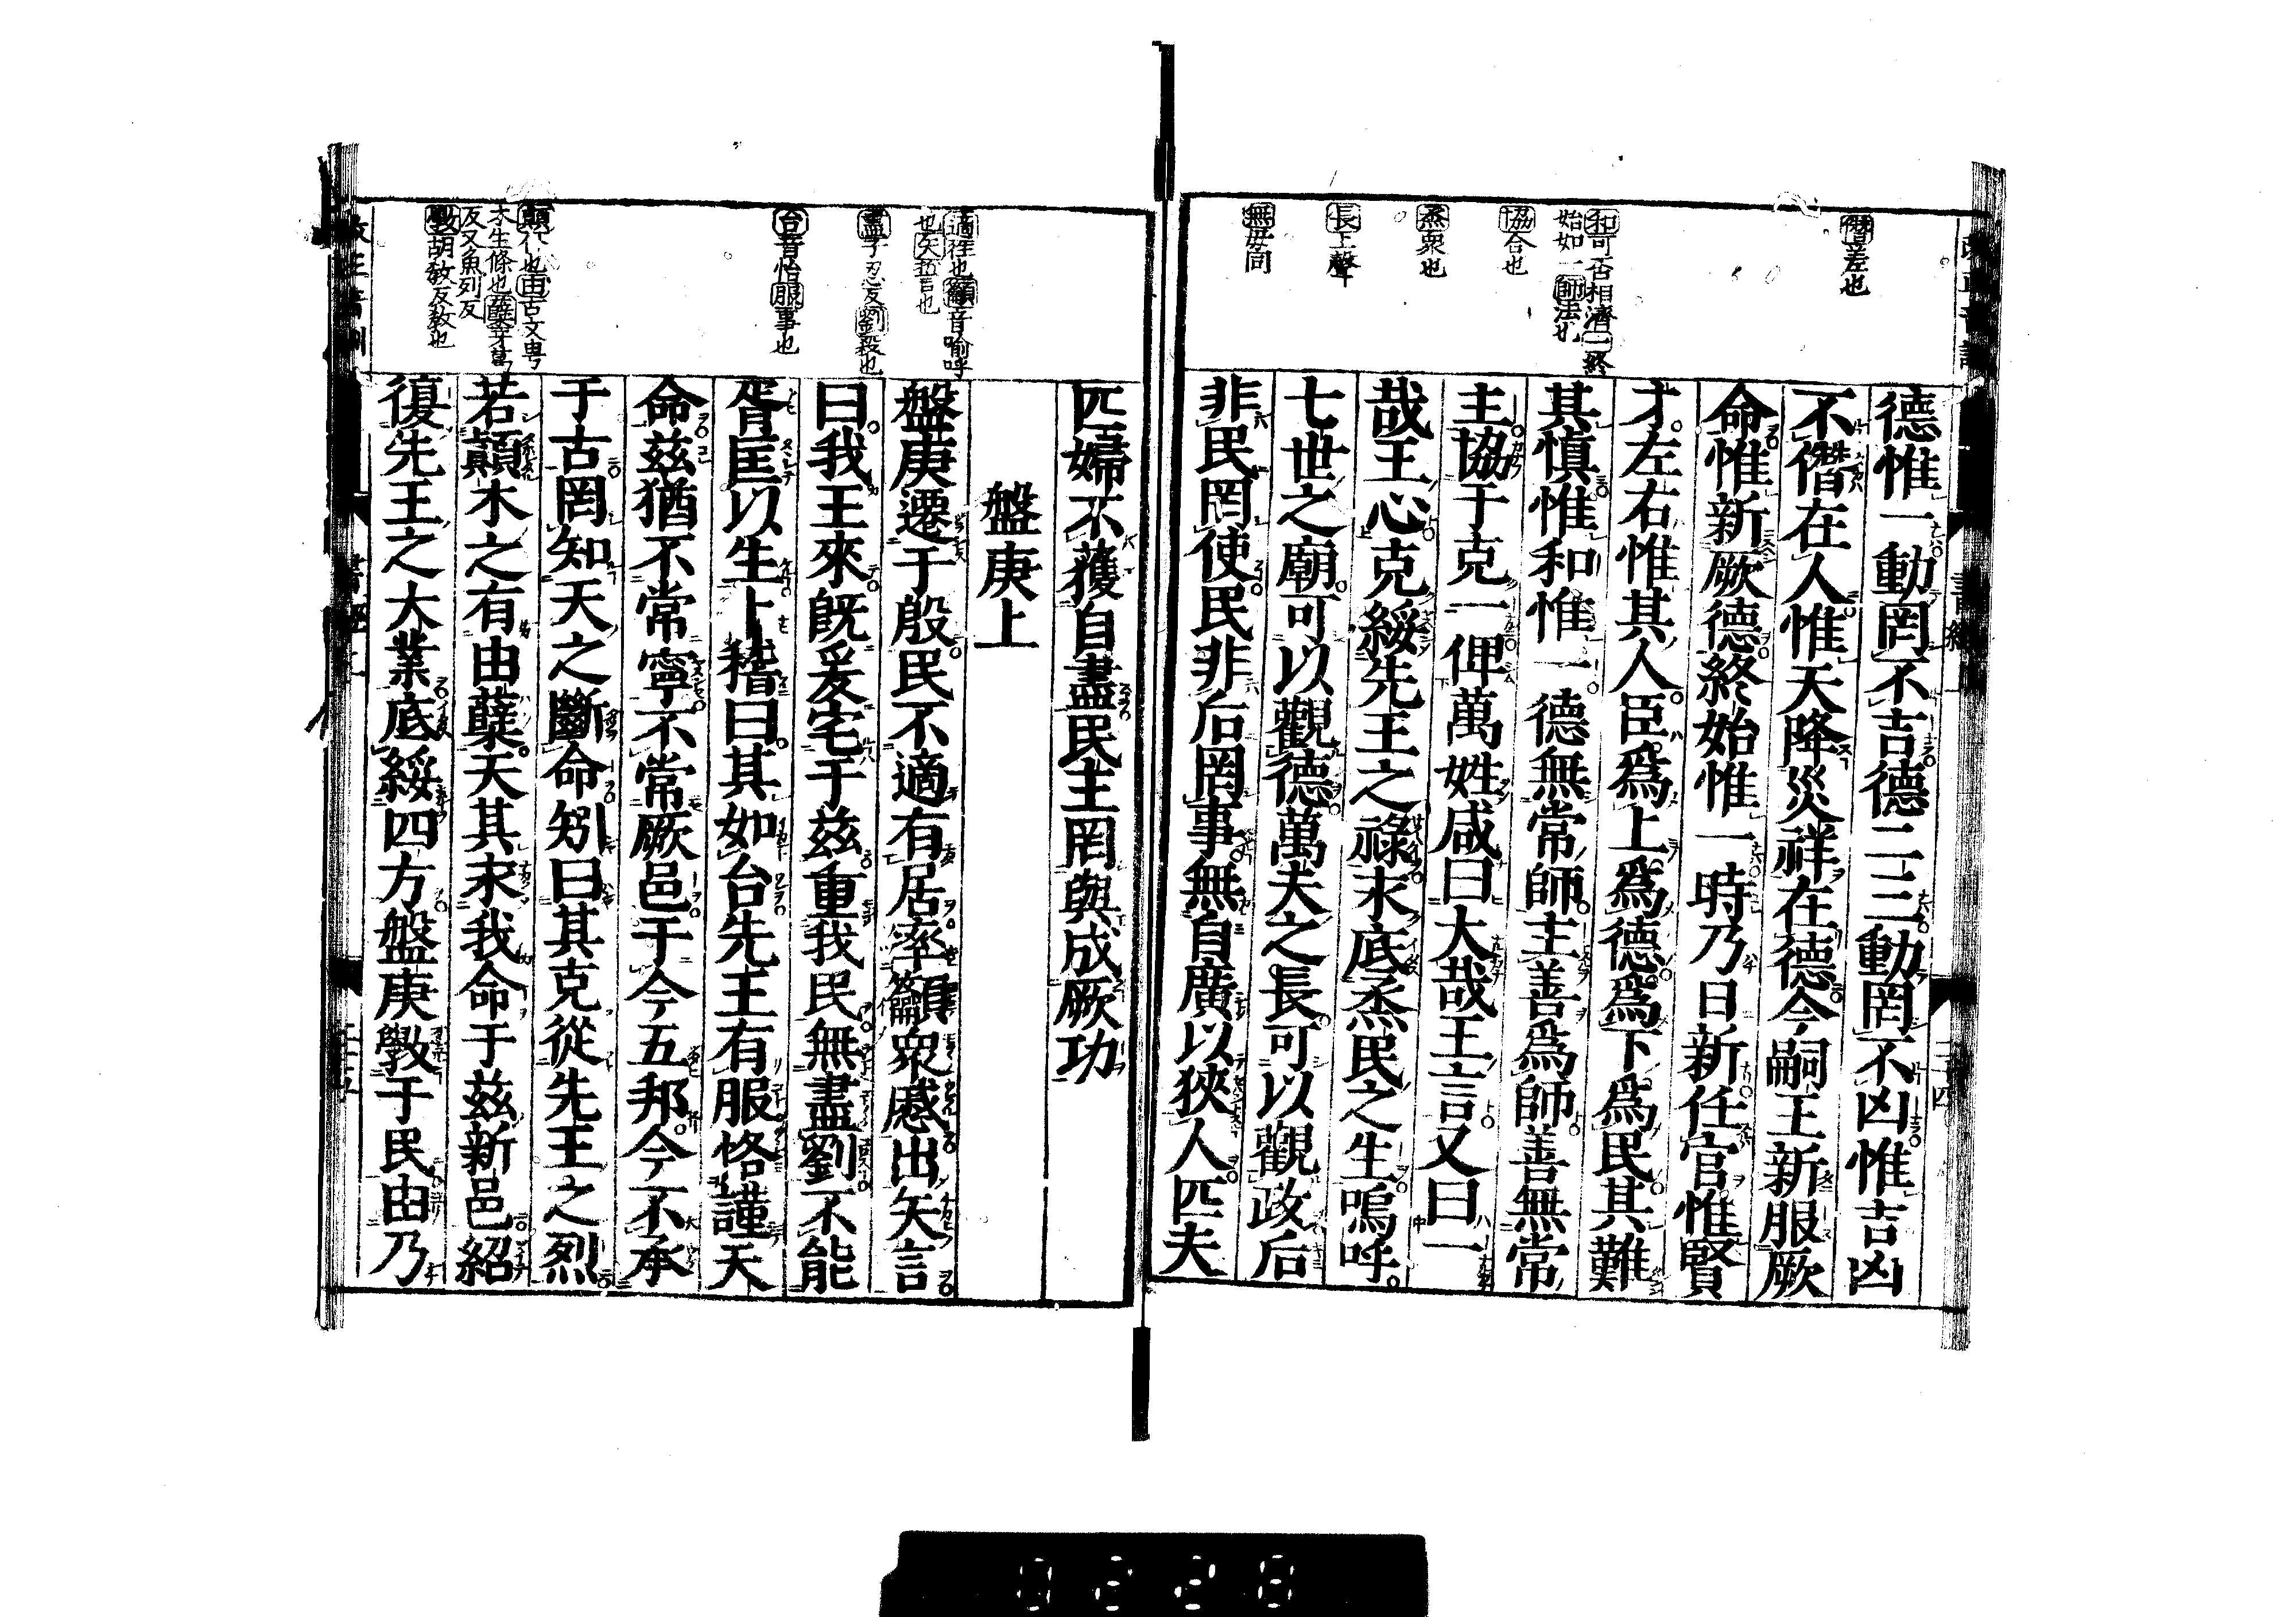 僭差也
和可否相濟一終
始如一師法也
協合也
烝衆也
長上聲
無毋同
德惟一動罔不吉德二三動罔不凶惟吉凶
不僭在人惟天降災祥在德今嗣王新服厥
命惟新厥德終始惟一時乃日新任官惟賢
才左右惟其人臣爲上爲德爲下爲民其難
其慎惟和惟一德無常師主善爲師善無常
主協于克一俾萬姓咸曰大哉王言又曰一
哉王心克綏先王之祿永底烝民之生嗚呼
七世之廟可以觀德萬夫之長可以觀政后
非民罔使民非后罔事無自廣以狹人匹夫
適徃也籲音喻呼
也矢誓言也
盡子忍反劉殺也
台音怡服事也
顚仆也由古文甹
木生條也蘖牙葛
反又魚列反
斅胡敎反敎也
匹婦不獲自盡民主罔與成厥功
盤庚上
盤庚遷于殷民不適有居率籲衆慼出矢言
曰我王來旣爰宅于茲重我民無盡劉不能
胥匡以生卜稽曰其如台先王有服恪謹天
命茲猶不常寧不常厥邑于今五邦今不承
于古罔知天之斷命矧曰其克從先王之烈
若顚木之有由蘖天其永我命于茲新邑紹
復先王之大業底綏四方盤庚斅于民由乃
0228